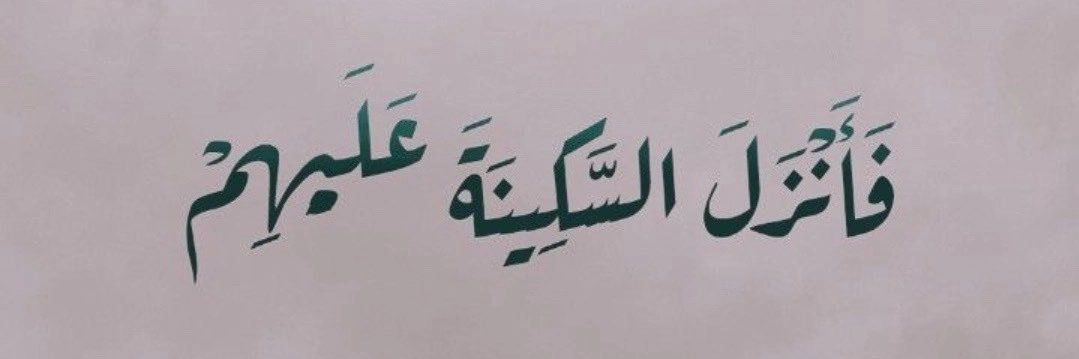 فَأَنْزَلَ السَّكِينَةَ عَلَيهِمْ